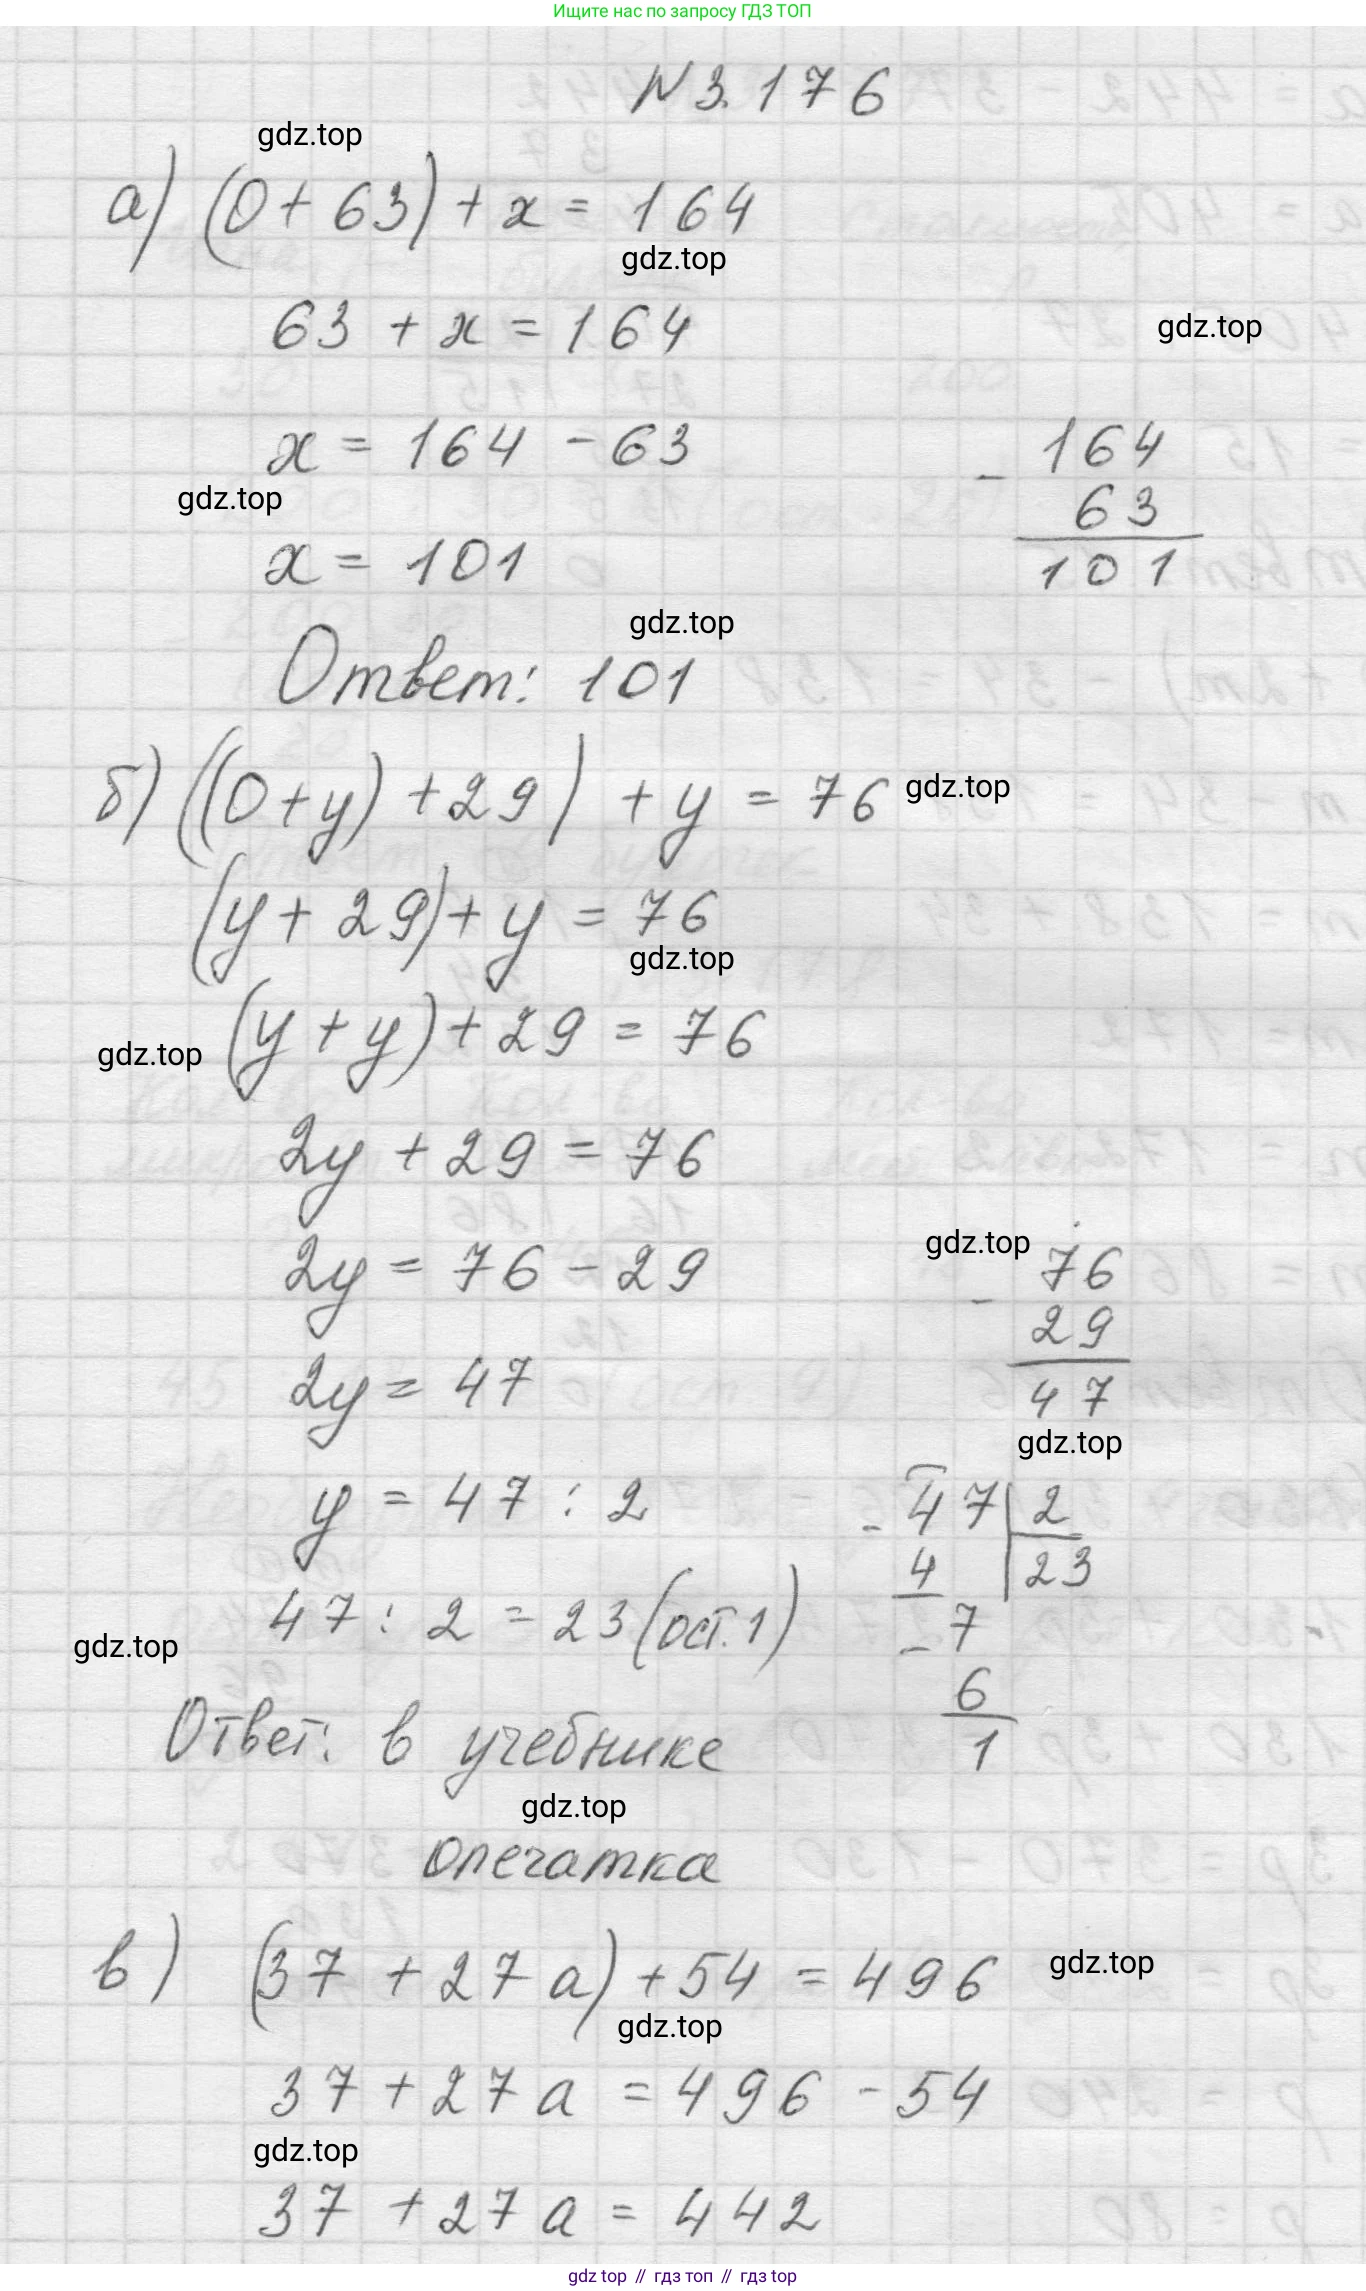 Ищите нас по запросу ГДЗ ТОП
N 3.176
gdz.top
а) (0 + 63) + x = 164
gdz.top
63 + x = 164
gdz.top
x = 164 - 63
- 164
gdz.top
63
x = 101
101
gdz.top
Ответ: 101
б) ((0 + y) + 29) + y = 76
gdz.top
(y + 29) + y = 76
gdz.top
(y + y) + 29 = 76
gdz.top
2y + 29 = 76
gdz.top
2y = 76 - 29
- 76
29
2y = 47
47
gdz.top
y = 47 : 2
- 47 | 2
4 | 23
47 : 2 = 23 (ост. 1)
- 7
gdz.top
6
Ответ: в учебнике
1
gdz.top
опечатка
в) (37 + 27 a) + 54 = 496
gdz.top
gdz.top
37 + 27 a = 496 - 54
gdz.top
37 + 27 a = 442
gdz top // гдз топ // gdz top